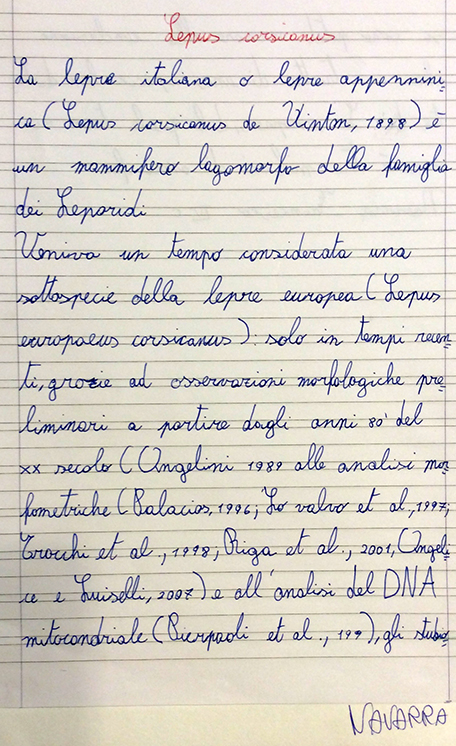 Lepus corsicanus
La lepre italiana o lepre appennini-
ca (Lepus corsicanus de Winton, 1898) è
un mammifero lagomorfo della famiglia
dei Leporidi
Veniva un tempo considerata una
sottospecie della lepre europea (Lepus
europaeus corsicanus): solo in tempi recen-
ti, grazie ad osservazioni morfologiche pre-
liminari a partire dagli anni 80' del
XX secolo (Angelini 1989 alle analisi mor-
fometriche (Palacios, 1996; Lo valvo et al., 1997;
Trocchi et al., 1998; Riga et al., 2001, (Angeli-
ce e Luiselli, 2007) e all'analisi del DNA
mitocondriale (Pierpaoli et al., 199), gli studio-
NAVARRA